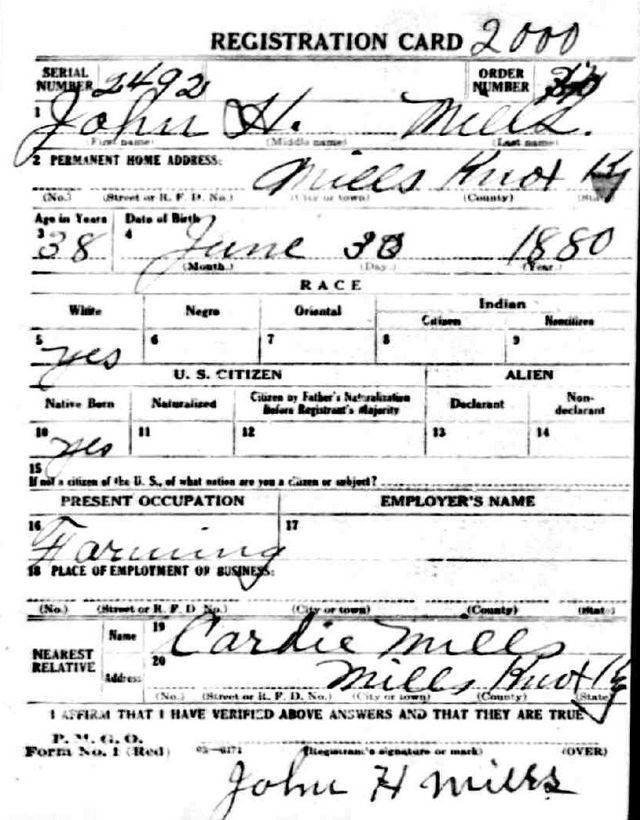 REGISTRATION CARD 2000
SERIAL NUMBER 2492 ORDER NUMBER
1 John H. Mills.
(First name) (Middle name) (Last name)
2 PERMANENT HOME ADDRESS:
Mills Knox Ky
(No.) (Street or R. F. D. No.) (City or town) (County) (State)
Age in Years Date of Birth
3 38 4 June 1880
(Month.) (Day.) (Year.)
RACE
White Negro Oriental Indian
Citizen Noncitizen
5 yes 6 7 8 9
U. S. CITIZEN ALIEN
Native Born Naturalized Citizen by Father's Naturalization Before Registrant's Majority Declarant Non-declarant
10 yes 11 12 13 14
15
If not a citizen of the U. S., of what nation are you a citizen or subject?
PRESENT OCCUPATION EMPLOYER'S NAME
16 Farming 17
18 PLACE OF EMPLOYMENT OR BUSINESS:
(No.) (Street or R. F. D. No.) (City or town) (County) (State)
NEAREST RELATIVE Name 19 Cardie Mills
Address 20 Mills Knox Ky
(No.) (Street or R. F. D. No.) (City or town) (County) (State)
I AFFIRM THAT I HAVE VERIFIED ABOVE ANSWERS AND THAT THEY ARE TRUE
P. M. G. O.
Form No. 1 (Red) (Registrant's signature or mark) (OVER)
John H Mills